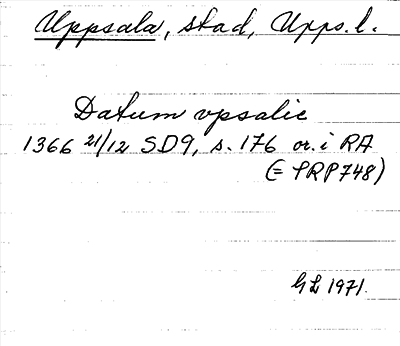 Uppsala, stad, Upps. l.
Datum vpsalie
1366 21/12 SD9, s. 176 or. i RA
(= PRP748)
GL 1971.